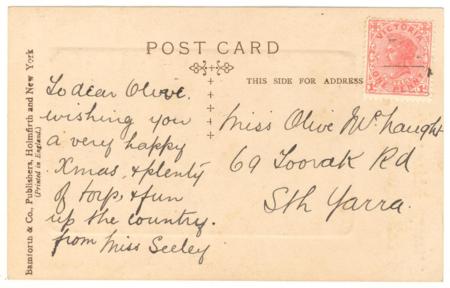 POST CARD
THIS SIDE FOR ADDRESS
VICTORIA
ONE PENNY
Bamforth & Co., Publishers, Holmfirth and New York
(Printed in England.)
To dear Olive.
wishing you
a very happy
Xmas, & plenty
of & fun
up the country.
from Miss Seeley
Miss Olive McNaught
69 Toorak Rd
Sth Yarra.